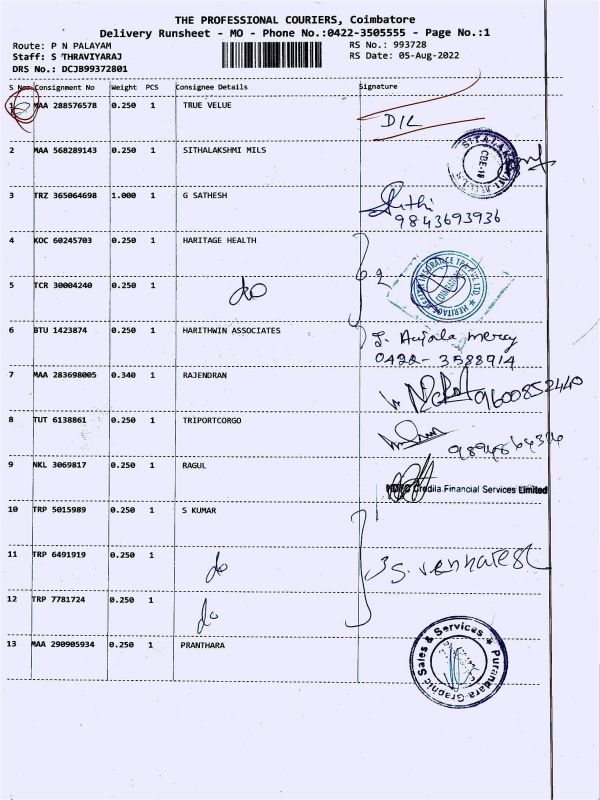 THE PROFESSIONAL COURIERS, Coimbatore
Delivery Runsheet - MO - Phone No.:0422-3505555 - Page No.:1
Route: P N PALAYAM RS No.: 993728
Staff: S THRAVIYARAJ RS Date: 05-Aug-2022
DRS No.: DCJB99372801
S No. Consignment No Weight PCS Consignee Details Signature
1 MAA 288576578 0.250 1 TRUE VELUE
D/L
2 MAA 568289143 0.250 1 SITHALAKSHMI MILS
CBE-18
3 TRZ 365064698 1.000 1 G SATHESH
9843693936
4 KOC 60245703 0.250 1 HARITAGE HEALTH
5 TCR 30004240 0.250 1 do 2
6 BTU 1423874 0.250 1 HARITHWIN ASSOCIATES
0422-3588914
7 MAA 283698005 0.340 1 RAJENDRAN
9600852440
8 TUT 6138861 0.250 1 TRIPORTCORGO
9 NKL 3069817 0.250 1 RAGUL
Credila Financial Services Limited
10 TRP 5015989 0.250 1 S KUMAR
11 TRP 6491919 0.250 1 do 3
12 TRP 7781724 0.250 1 do
13 MAA 290905934 0.250 1 PRANTHARA
Purandara Graphic Sales & Services